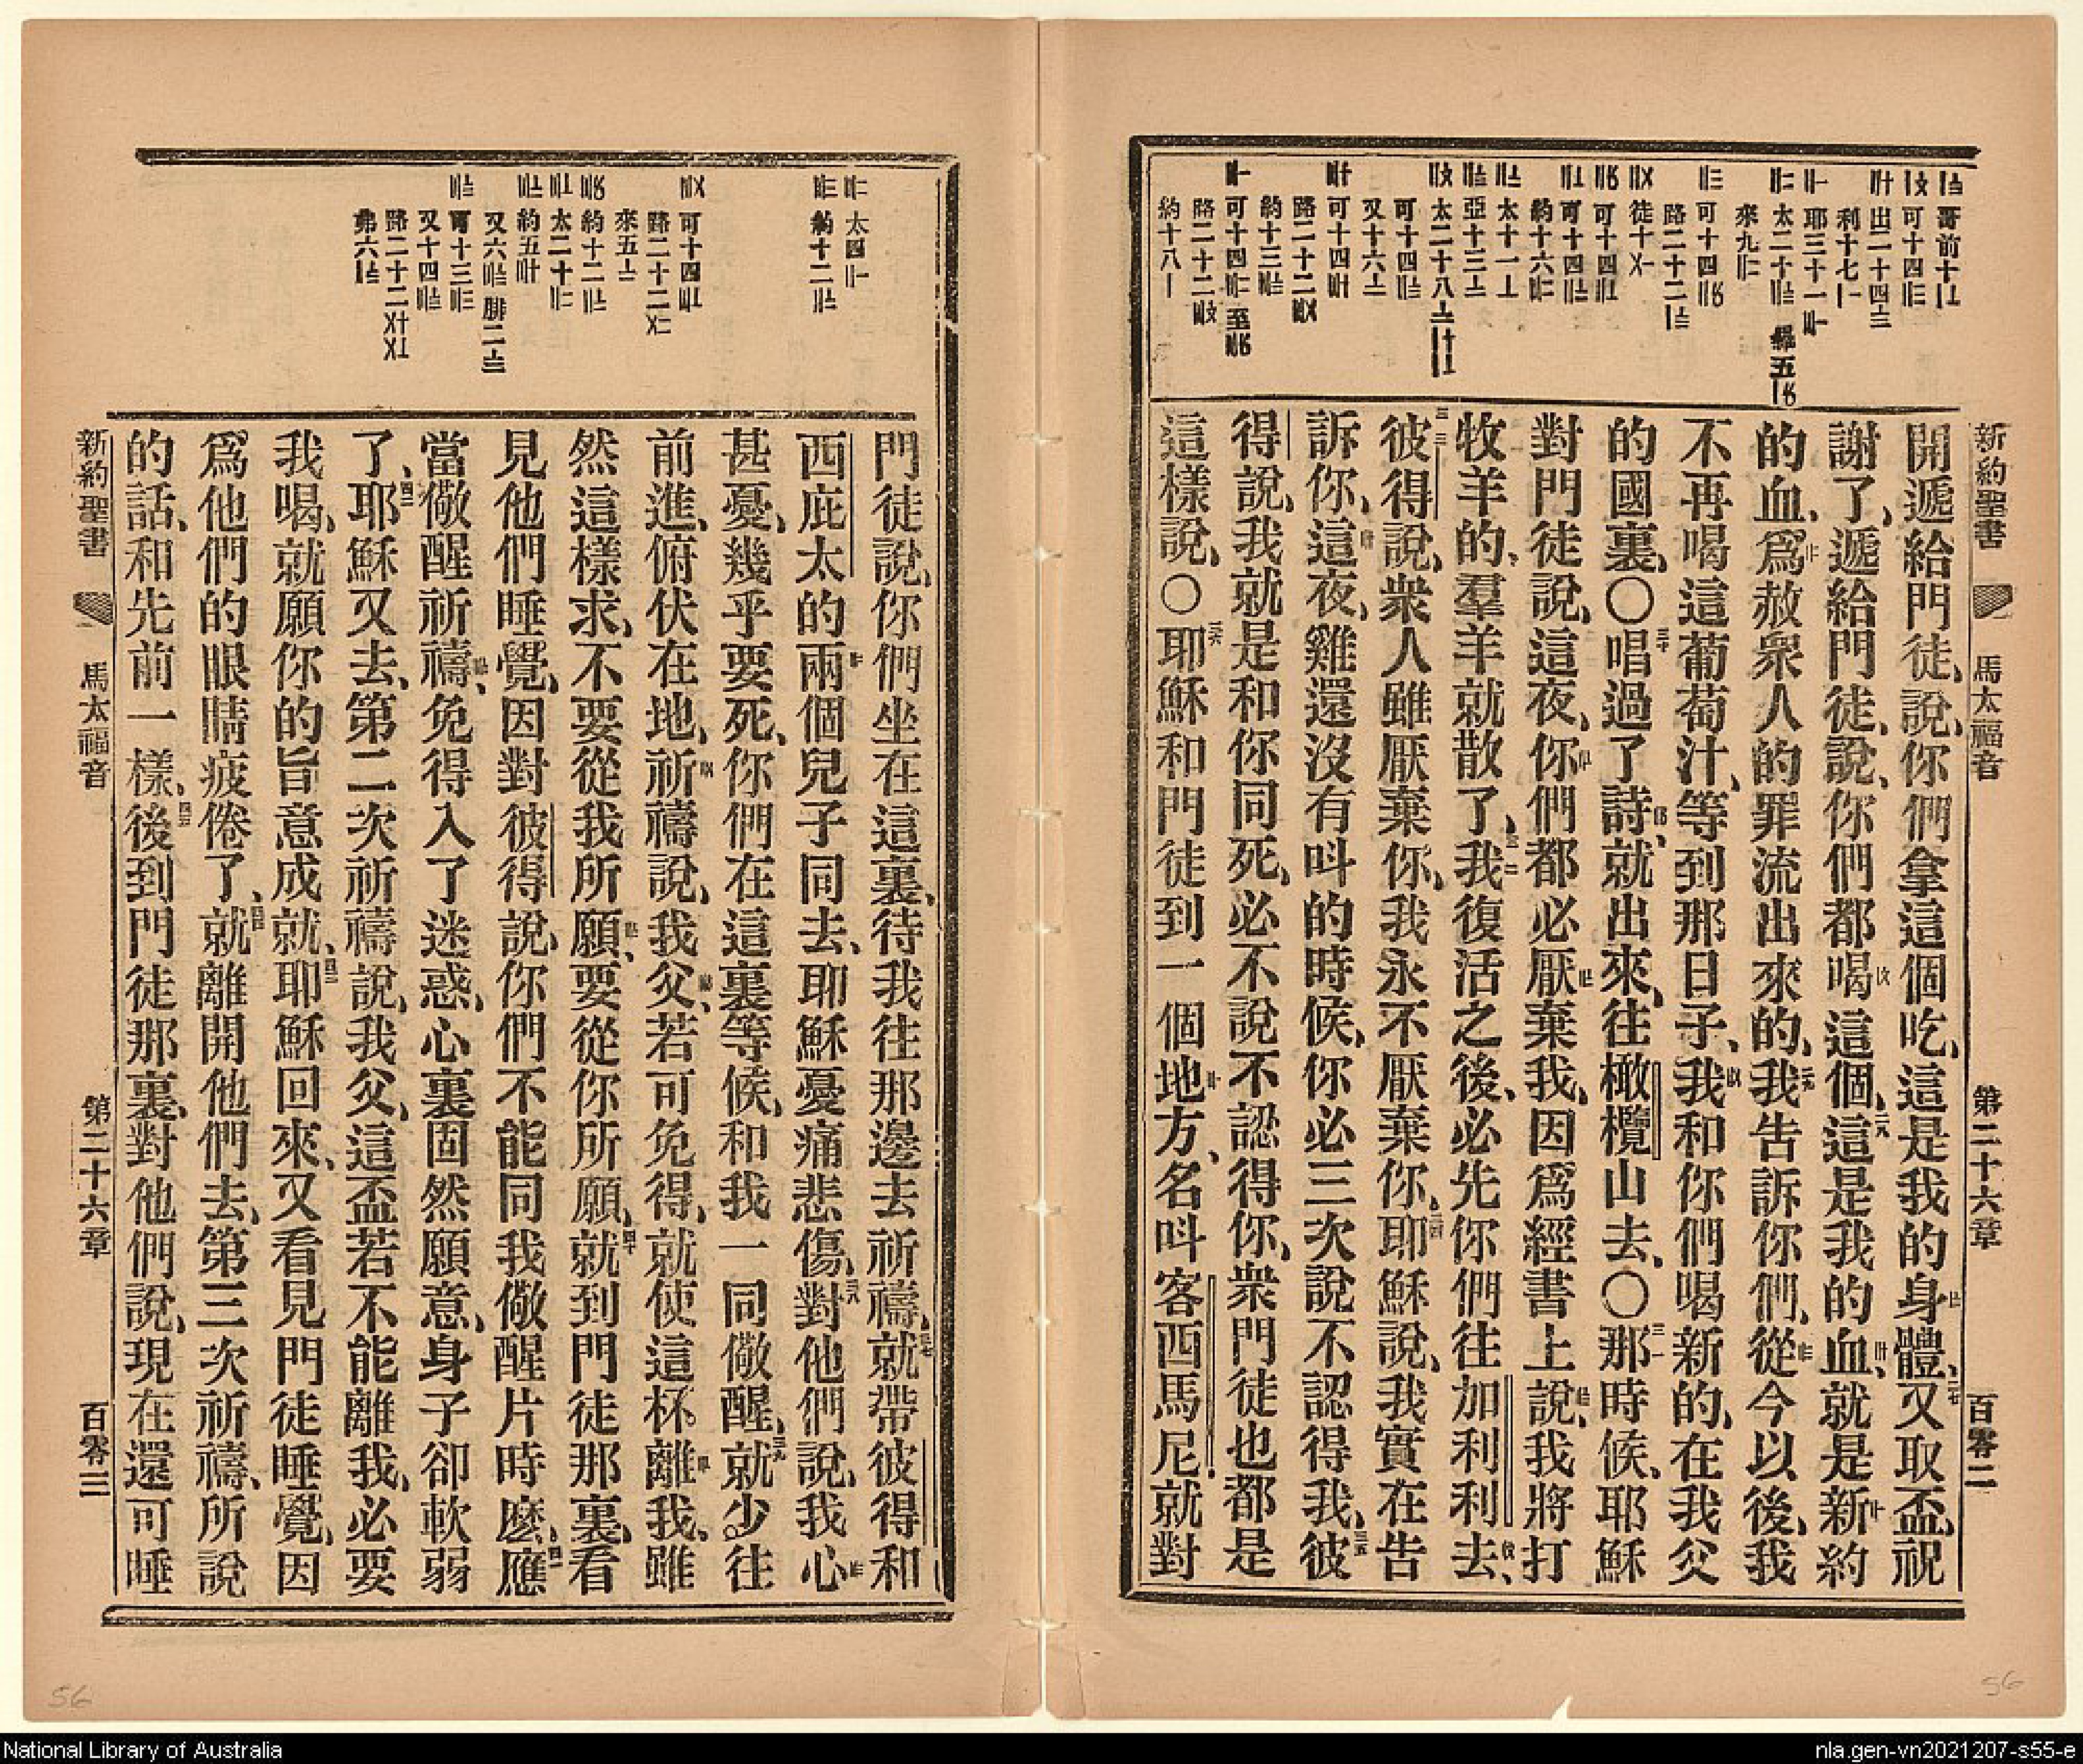 新約聖書 馬太福音 第二十六章 百零二
開遞給門徒、說、你們拿這個吃、這是我的身體、又取盃、祝
謝了、遞給門徒、說、你們都喝這個、這是我的血、就是新約
的血、爲赦衆人的罪流出來的、我告訴你們、從今以後、我
不再喝這葡萄汁、等到那日子、我和你們喝新的、在我父
的國裏、〇唱過了詩、就出來、往橄欖山去、〇那時候、耶穌
對門徒說、這夜、你們都必厭棄我、因爲經書上說、我將打
牧羊的、羣羊就散了、我復活之後、必先你們往加利利去、
彼得說、衆人雖厭棄你、我永不厭棄你、耶穌說、我實在告
訴你、這夜、雞還沒有呌的時候、你必三次說不認得我、彼
得說、我就是和你同死、必不說不認得你、衆門徒也都是
這樣說、〇耶穌和門徒到一個地方、名呌客西馬尼、就對
門徒說、你們坐在這裏、待我往那邊去祈禱、就帶彼得和
西庇太的兩個兒子同去、耶穌憂痛悲傷、對他們說、我心
甚憂、幾乎要死、你們在這裏等候、和我一同儆醒、就少往
前進、俯伏在地、祈禱說、我父、若可免得、就使這杯離我、雖
然這樣求、不要從我所願、要從你所願、就到門徒那裏、看
見他們睡覺、因對彼得說、你們不能同我儆醒片時麽、應
當儆醒祈禱、免得入了迷惑、心裏固然願意、身子卻軟弱
了、耶穌又去、第二次祈禱說、我父、這盃若不能離我、必要
我喝、就願你的旨意成就、耶穌回來、又看見門徒睡覺、因
爲他們的眼睛疲倦了、就離開他們去、第三次祈禱、所說
的話、和先前一樣、後到門徒那裏、對他們說、現在還可睡
新約聖書 馬太福音 第二十六章 百零三
56
56
National Library of Australia
nla.gen-vn2021207-s55-e